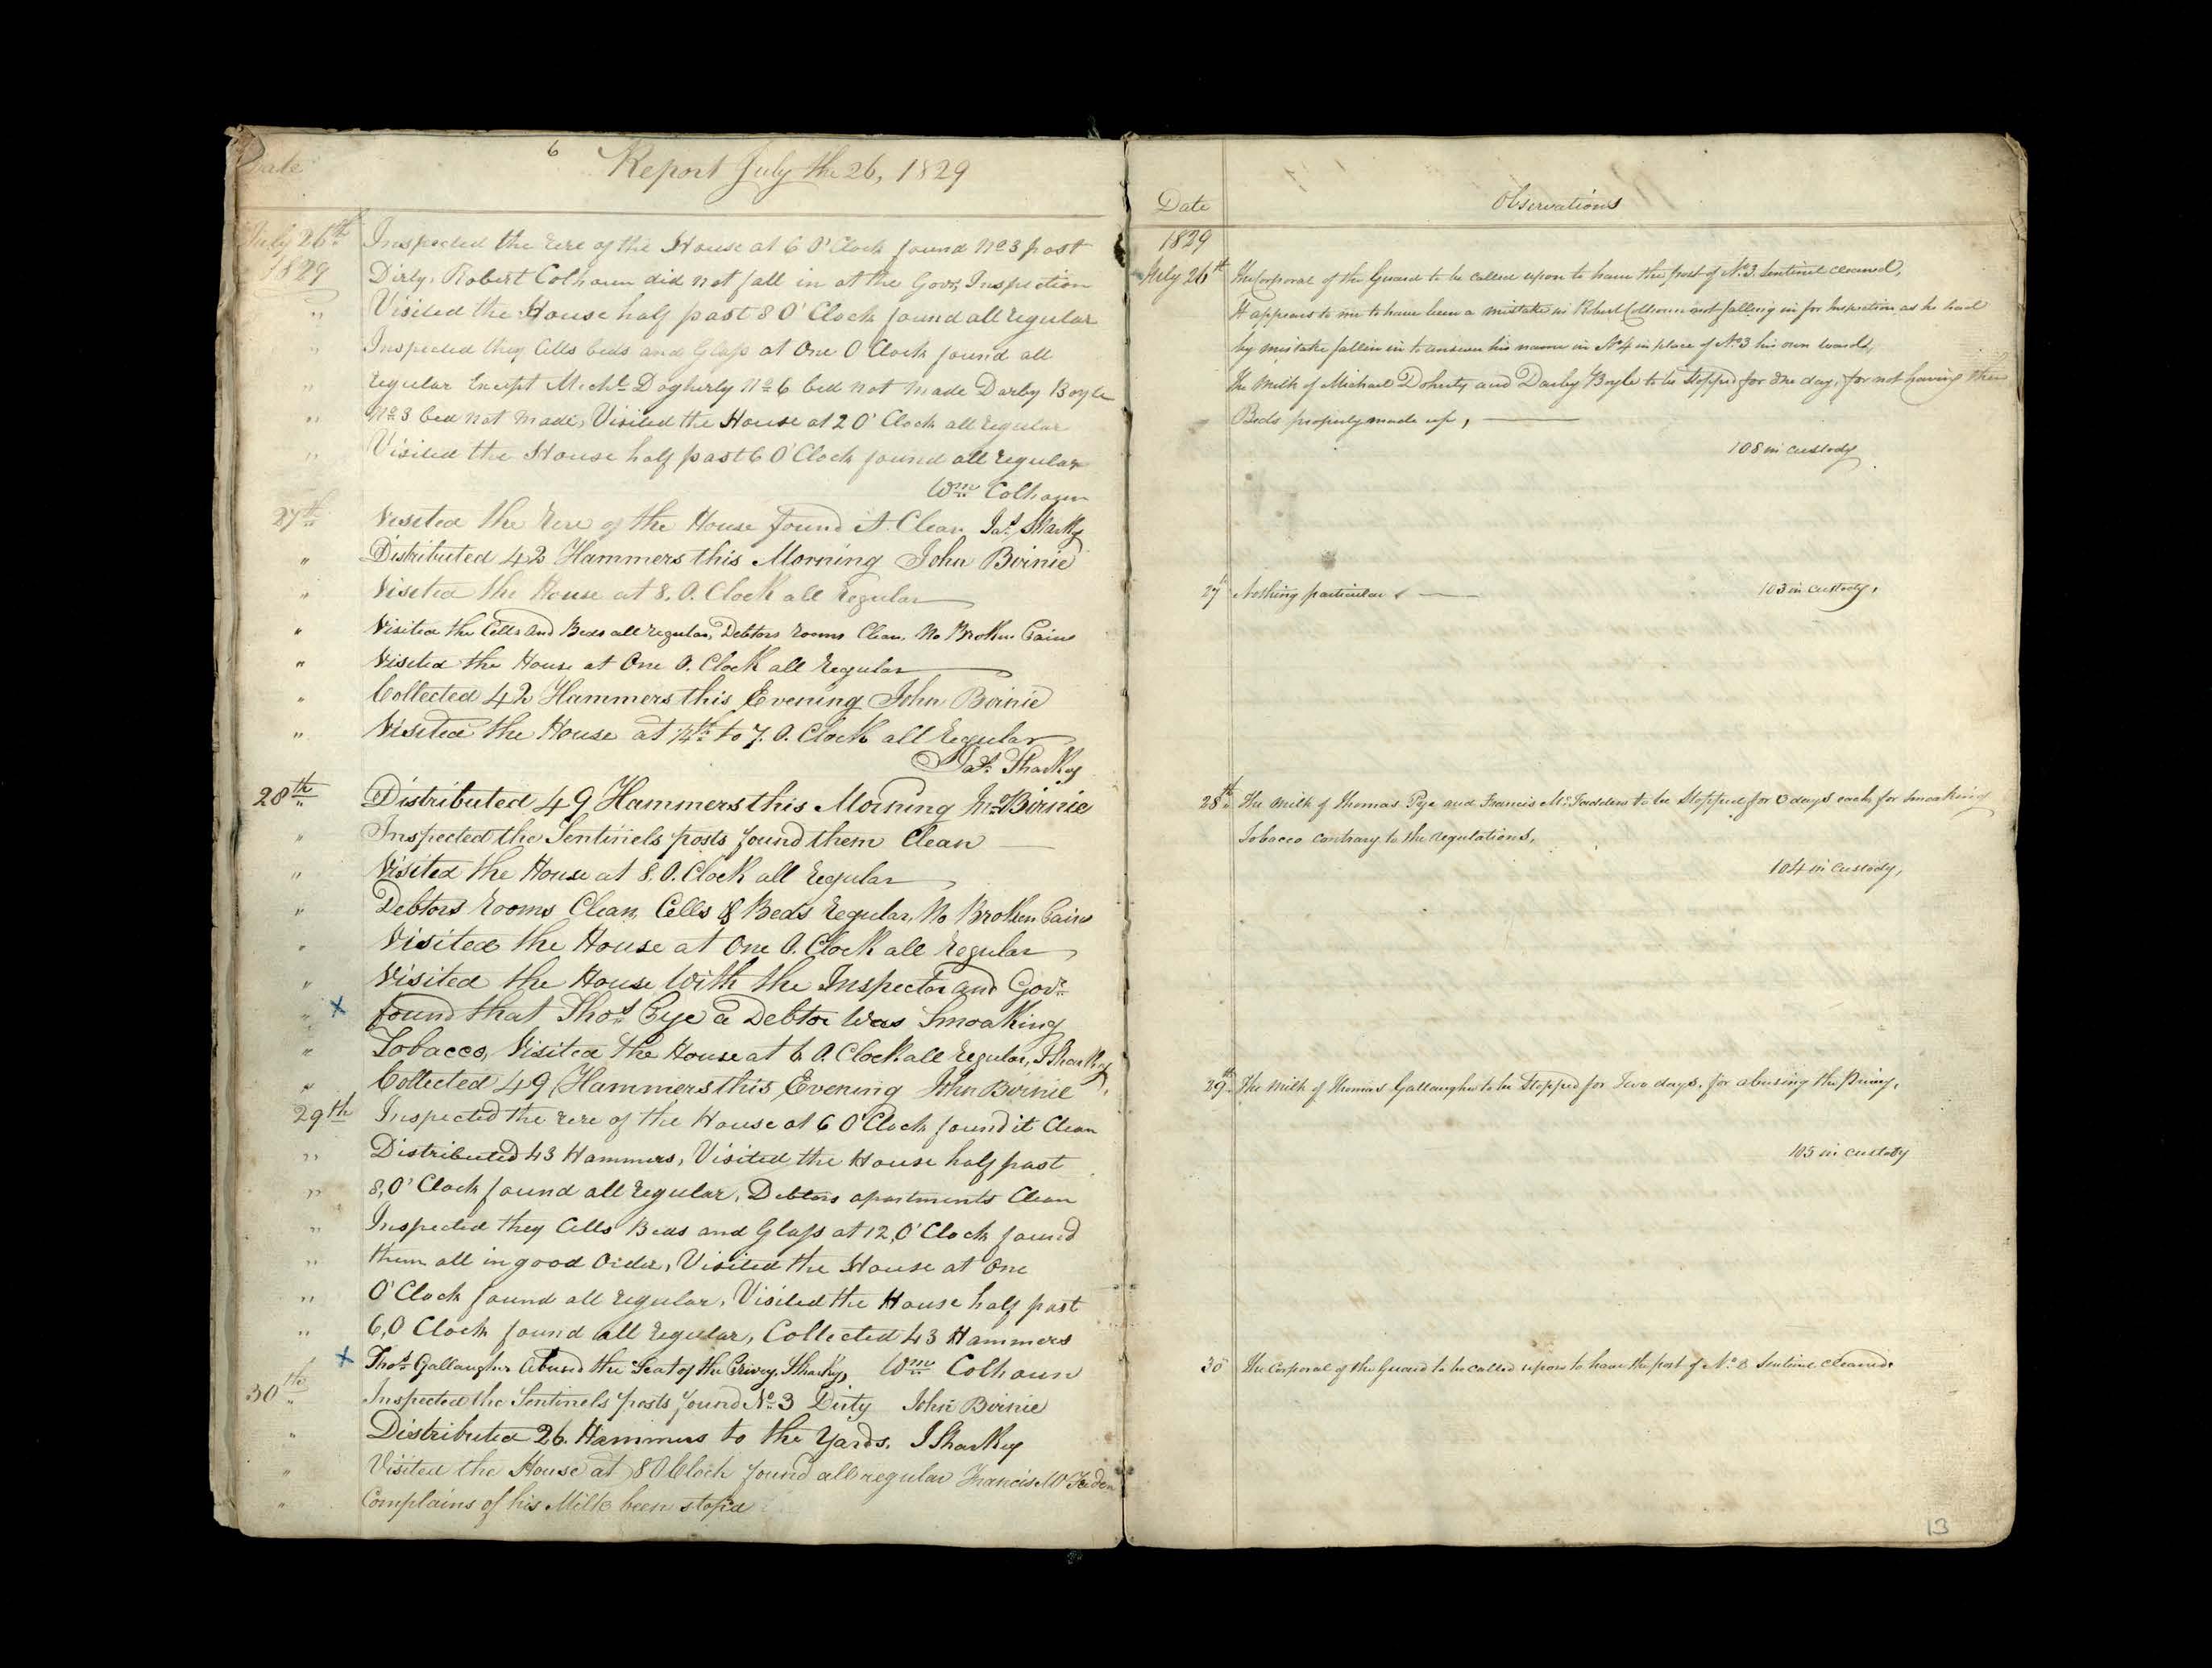 Date
6
Report July the 26, 1829
July 26th Inspected the rere of the House at 6 O'Clock found No 3 post
1829 Dirty, Robert Colhoun did not fall in at the Govr Inspection
" Visited the House half past 8 O'Clock found all regular
" Inspected they Cells beds and Glass at One O Clock found all
" regular Except Michl Dogherty No 6 bed not made Darby Boyle
" No 3 bed not made, Visited the House at 2 O'Clock all regular
" Visited the House half past 6 O'Clock found all regular
Wm Colhoun
27th Visited the Rere of the House found it Clean Jas Sharkey
" Distributed 42 Hammers this Morning John Birnie
" Visited the House at 8. O. Clock all Regular
" Visited the Cells and Beds all regular, Debtors rooms Clean, No Broken Pains
" Visited the House at One O. Clock all Regular
" Collected 42 Hammers this Evening John Birnie
" Visited the House at 1/4th to 7. O. Clock all Regular
Jas Sharkey
28th Distributed 49 Hammers this Morning Jn Birnie
" Inspected the Sentinels posts found them Clean
" Visited the House at 8. O. Clock all Regular
" Debtors rooms Clean, Cells & Beds Regular, No Broken Pains
" Visited the House at One O. Clock all Regular
" Visited the House With the Inspector and Govr
" x found that Thos Pye a Debtor Was Smoaking
" Tobacco, Visited the House at 6 O. Clock all Regular, J Sharkey
" Collected 49 Hammers this Evening John Birnie
29th Inspected the rere of the House at 6 O'Clock found it Clean
" Distributed 43 Hammers, Visited the House half past
" 8,O'Clock found all regular, Debtors apartments Clean
" Inspected they Cells Beds and Glass at 12,O'Clock found
" them all in good Order, Visited the House at One
" O'Clock found all regular, Visited the House half past
" 6,O Clock found all regular, Collected 43 Hammers
x Thos Gallaugher Abused the Seat of the Privey, J Sharkey, Wm Colhoun
30th Inspected the Sentinels posts found No 3 Dirty John Birnie
" Distributed 26. Hammers to the Yards. J Sharkey
" Visited the House at 8 O Clock found all regular Francis McFaden
" Complains of his Milk been stopd
Date
Observations
1829
July 26th The Corporal of the Guard to be called upon to have the post of No 3 Sentinel cleaned,
It appears to me to have been a mistake in Robert Colhoun not falling in for Inspection as he had
by mistake fallen in to answer his name in No 4 in place of No 3 his own ward,
The Milk of Michael Doherty and Darby Boyle to be Stopped for One day, for not having their
Beds properly made up,
108 in custody
27th Nothing particular
103 in custody,
28th The Milk of Thomas Pye and Francis McFadden to be Stopped for days each for Smoaking
Tobacco contrary to the regulations,
104 in custody,
29th The Milk of Thomas Gallaugher to be Stopped for Two days, for abusing the Privy,
105 in custody
30 The Corporal of the Guard to be called upon to have the post of No 3 Sentinel cleaned.
13